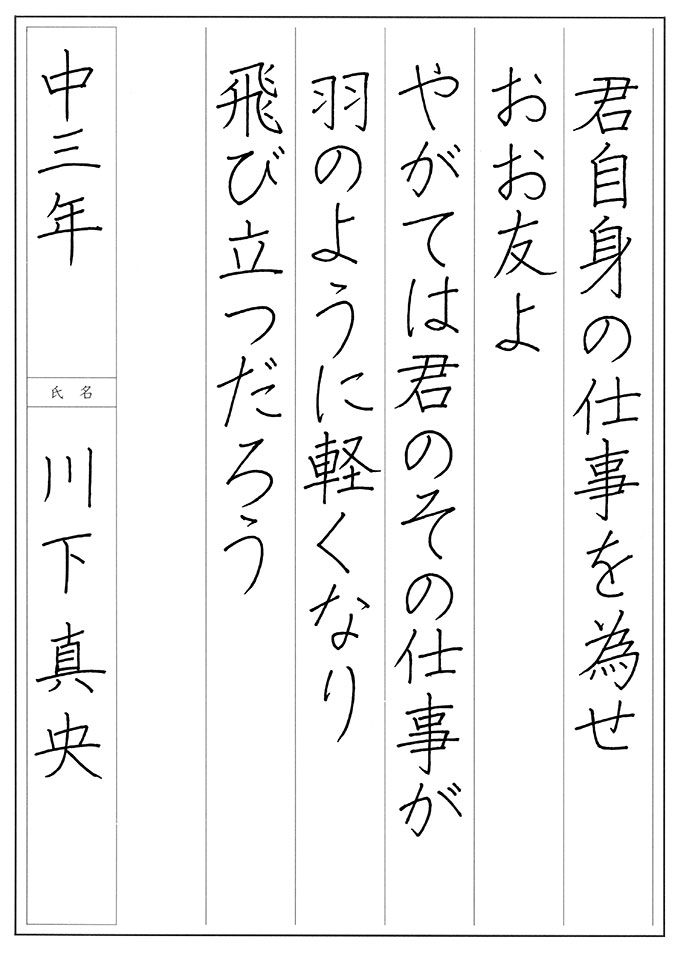 君自身の仕事を為せ
おお友よ
やがては君のその仕事が
羽のように軽くなり
飛び立つだろう
中三年
氏名
川下真央